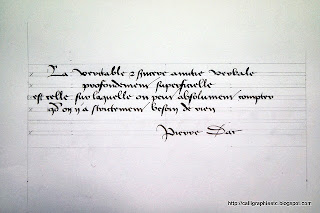 La veritable & sincere amitie verbale
profondement superficielle
est celle sur laquelle on peut absolument compter
qd on n a strictement besoin de rien
Pierre Dac
http://calligraphissic.blogspot.com